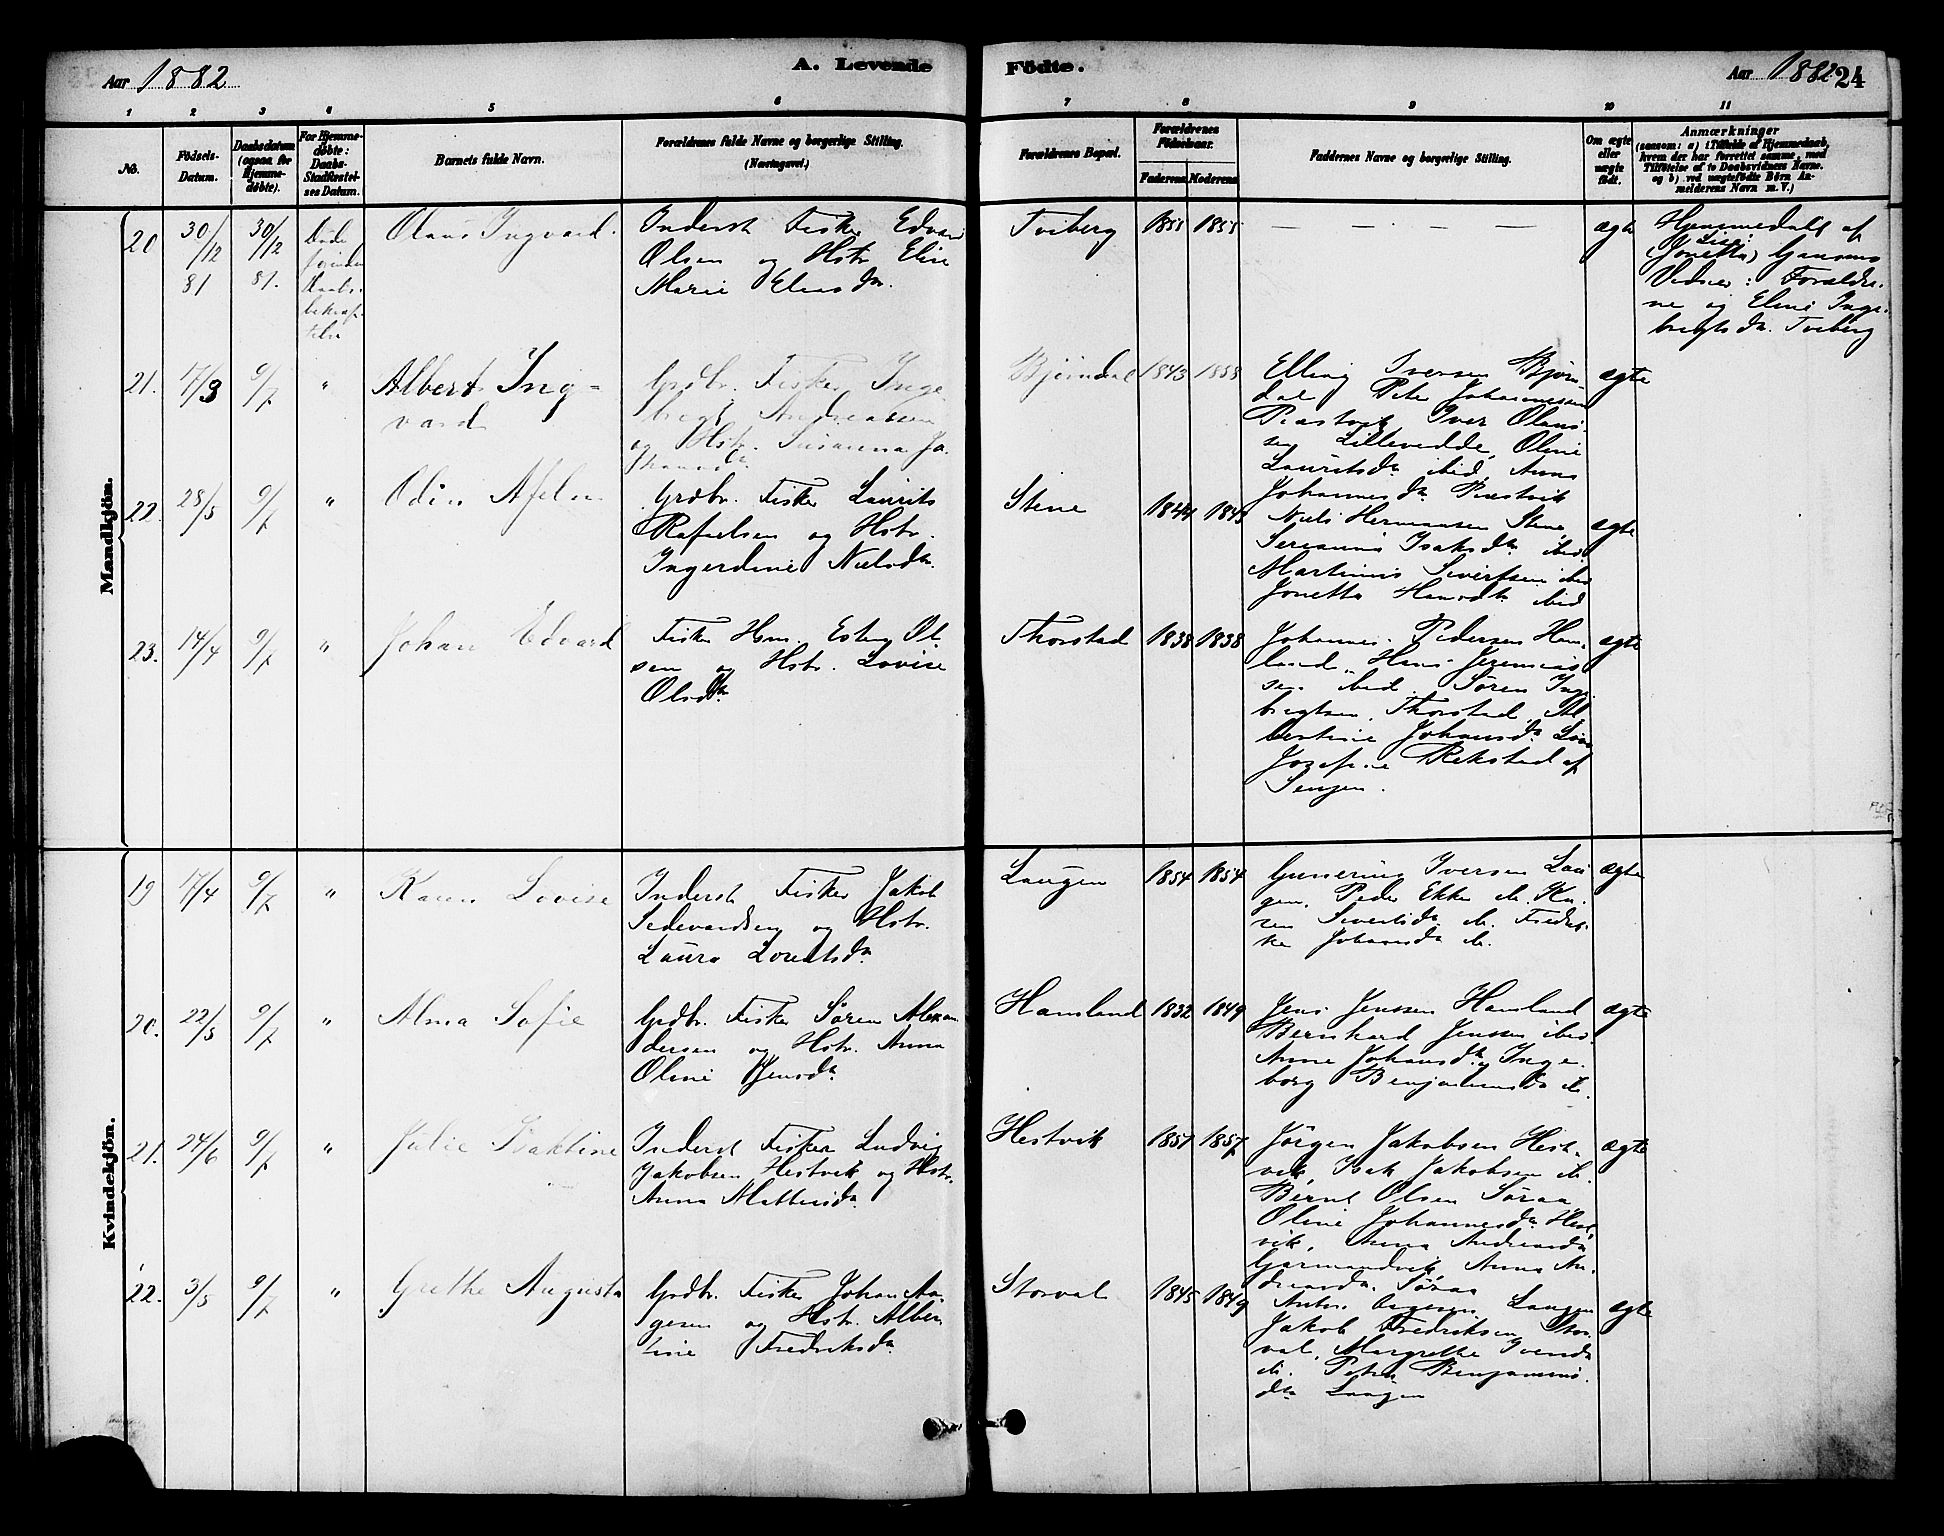 Aar 1882
A. Levende
Födte.
Aar 1882
24
1 2 3 4 5 6 7 8 9 10 11
No.
Födsels-
Datum.
Daabsdatum
(ogsaa for
Hjemme-
døbte).
For Hjemme-
døbte:
Daabs-
Stadfæstel-
ses Datum.
Barnets fulde Navn.
Forældrenes fulde Navne og borgerlige Stilling.
(Næringsvei.)
Forældrenes Bopæl.
Forældrenes
Födselsaar.
Faderens Moderens
Faddernes Navne og borgerlige Stilling.
Om ægte
eller
uægte
født.
Anmærkninger
(saasom: a) i Tilfælde af Hjemmedaab,
hvem der har forrettet samme, med
Tilføielse af to Daabsvidners Navne.
og b) ved uægtefødte Börn An-
melderens Navn m. V.)
Mandkjön.
20
30/12
81
30/12
81.
Döde
forinden
Daabs-
bekræf-
telse
Olaus Ingvard.
Inderst Fisker Edvard
Olsen og Hstr. Eline
Marie Eliasdtr.
Tviberg
1855 1855
— — — — —
ægte
Hjemmedøbt af
Lise
(Jonetta) Hansens
Vidner: Forældre-
ne og Eline Inge-
brigtsdtr. Tviberg
21.
17/3
9/7
"
Albert Ing-
vard
Grdbr. Fisker Inge
brigt Andreassen
og Hstr. Susanna Jo
hansdtr.
Bjørndal
1843 1858
Elling Iversen Bjørn
dal Peter Johannesen
Ræstvik Iver Olaus-
sen Lillevedde, Oline
Lauritsdtr. ibid, Anna
Johannesdtr. Ræstvik
ægte
22.
28/5
9/7
"
Odin Afeln
Grdbr. Fisker Laurits
Rafaelsen og Hstr.
Ingerdine Nielsdtr.
Stene
1844 1845
Niels Hermansen Stene,
Serianna Isaksdtr. ibid
Martinus Sivertsen ibid
Jonetta Hansdtr. ibid
ægte
23.
14/4
9/7
"
Johan Edvard
Fisker Hsm. Esten Ol-
sen og Hstr. Lovise
Olsdtr.
Thorstad
1838 1838
Johannes Pedersen Ham-
land, Hans Jeremias
sen ibid. Søren Inge
brigtsen Thorstad, Al
bertine Johansdtr.
Jozefine Rekstad af
Sengen.
ægte
Kvindekjön.
19
17/4
9/7
"
Karen Lovise
Inderst Fisker Jakob
Sedevardsen og Hstr.
Laura Lorentsdtr.
Laugen
1854 1854
Gunerius Iversen Lau
gen, Peder Ekker ib. Ka-
ren Sivertsdtr. ib. Fredri-
ke Johansdtr. ib.
ægte
20.
22/5
9/7
"
Alma Sofie
Grdbr. Fisker Sören Alexan
dersen og Hstr. Anna
Oline Jensdtr.
Hamland
1832 1849
Jens Jenssen Hamland
Bernhard Jenssen ibid
Anne Johansdtr. Inge-
borg Benjaminsdtr. ib.
ægte
21.
24/6
9/7
"
Julie Isaktine
Inderst Fisker Ludvig
Jakobsen Hestvik og Hstr.
Anna Mathisdtr.
Hestvik
1857 1857
Jörgen Jakobsen Hest-
vik, Isak Jakobsen ib.
Bernt Olsen Søraa
Oline Johannesdtr. Hest
vik, Anna Andreasdtr.
Gjermandvik Anna An-
dreasdtr. Søraa
ægte
22.
3/5
9/7
"
Grethe Augusta
Grdbr. Fisker Johan Aa-
gesen og Hstr. Alber
tine Fredriksdtr.
Storval
1845 1849
Anton Aagesen Laugen
Jakob Fredriksen Stor
val, Margrethe Iversdtr.
ib. Petra Benjamins-
dtr. Laugen
ægte